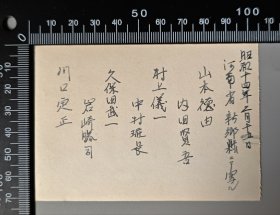 昭和十四年二月十五日
河南省新郷縣ニテ寫ス
山本德由
内田賢吾
村上儀一
中村班長
久保田武一
岩崎勝司
川口定正